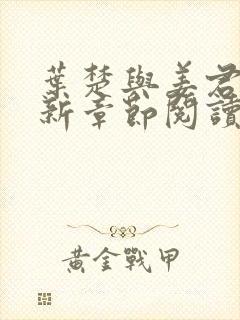 葉楚與姜君
新章節閱讀
黃金戰甲